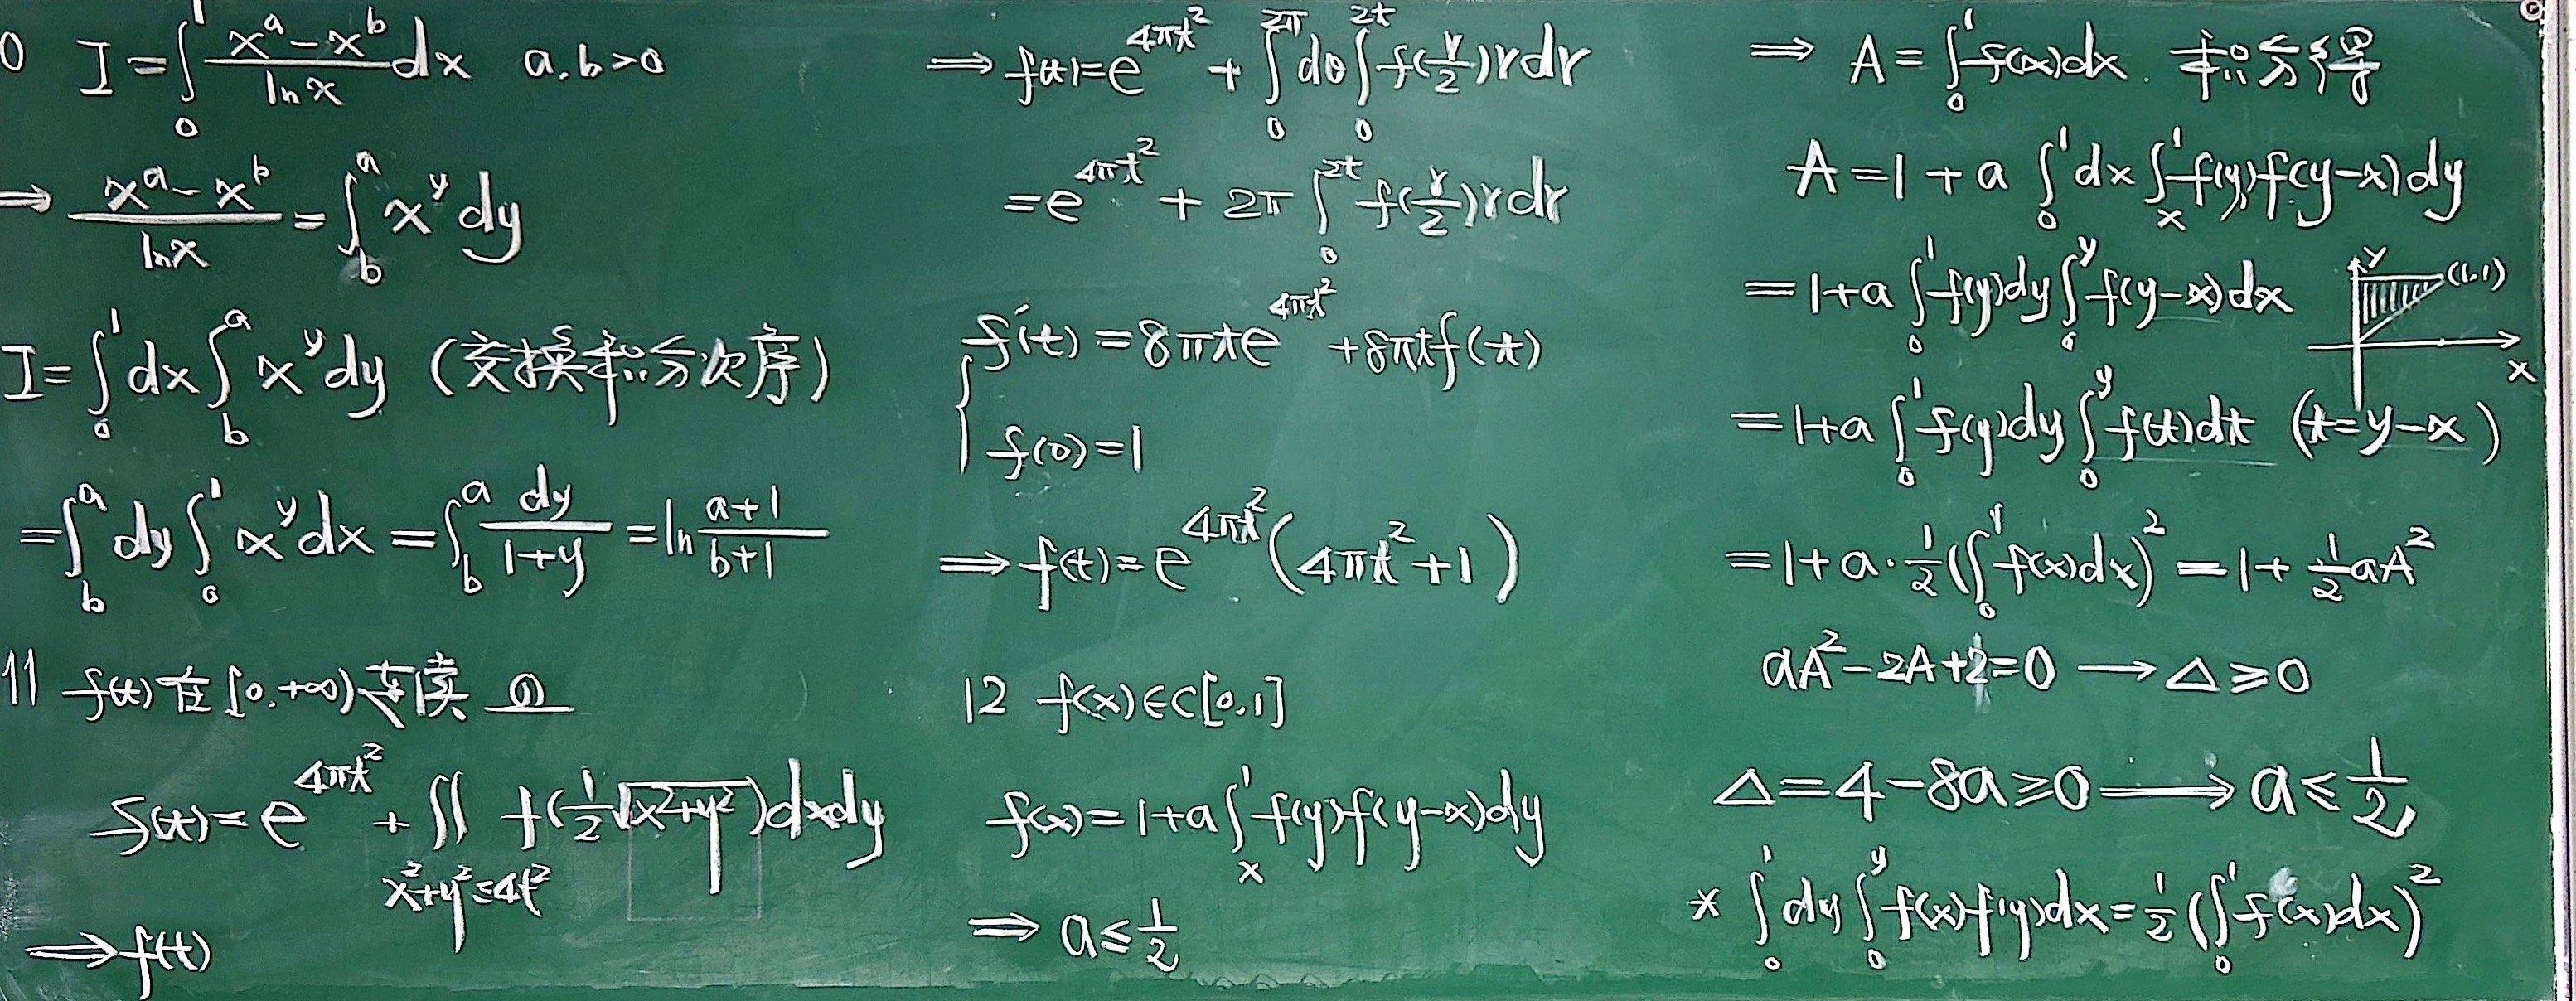 0 I = ∫₀¹ (xᵃ − xᵇ)/ln x dx a,b>0
⇒ (xᵃ − xᵇ)/ln x = ∫_b^a x^y dy
I = ∫₀¹ dx ∫_b^a x^y dy (交换积分次序)
= ∫_b^a dy ∫₀¹ x^y dx = ∫_b^a dy/(1+y) = ln (a+1)/(b+1)
11 f(t) 在 [0.+∞) 连续 且
f(t) = e^{4πt²} + ∬_{x²+y²≤4t²} f(½√(x²+y²)) dxdy
⇒ f(t)
⇒ f(t) = e^{4πt²} + ∫₀^{2π} dθ ∫₀^{2t} f(r/2) r dr
= e^{4πt²} + 2π ∫₀^{2t} f(r/2) r dr
{ f′(t) = 8πt e^{4πt²} + 8πt f(t)
f(0) = 1
⇒ f(t) = e^{4πt²} (4πt² + 1)
12 f(x) ∈ C[0.1]
f(x) = 1 + a ∫_x^1 f(y) f(y−x) dy
⇒ a ≤ 1/2
⇒ A = ∫₀¹ f(x) dx. 积分得
A = 1 + a ∫₀¹ dx ∫_x^1 f(y) f(y−x) dy
= 1 + a ∫₀¹ f(y) dy ∫₀^y f(y−x) dx
y
(1.1)
x
= 1 + a ∫₀¹ f(y) dy ∫₀^y f(t) dt (t = y−x)
= 1 + a · ½ (∫₀¹ f(x) dx)² = 1 + ½ aA²
aA² − 2A + 2 = 0 → Δ ≥ 0
Δ = 4 − 8a ≥ 0 ⟹ a ≤ 1/2
* ∫₀¹ dy ∫₀^y f(x) f(y) dx = ½ (∫₀¹ f(x) dx)²